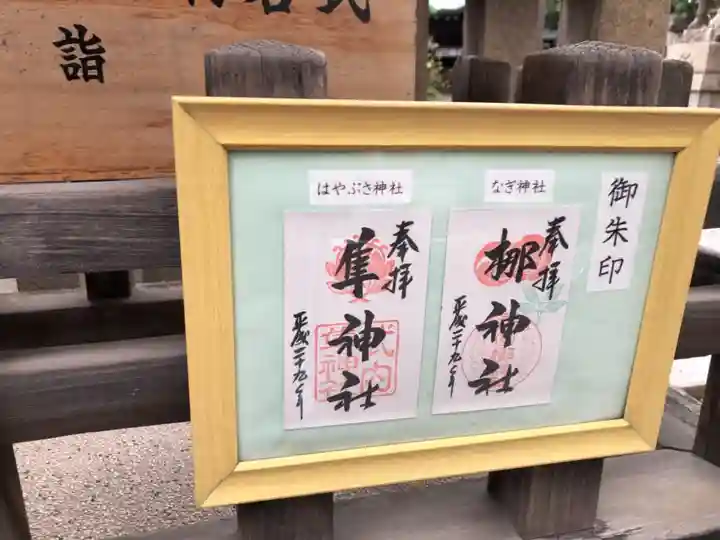 詣
御朱印
なぎ神社
奉拝
梛神社
平成二十九年
はやぶさ神社
奉拝
隼神社
平成二十九年
式内